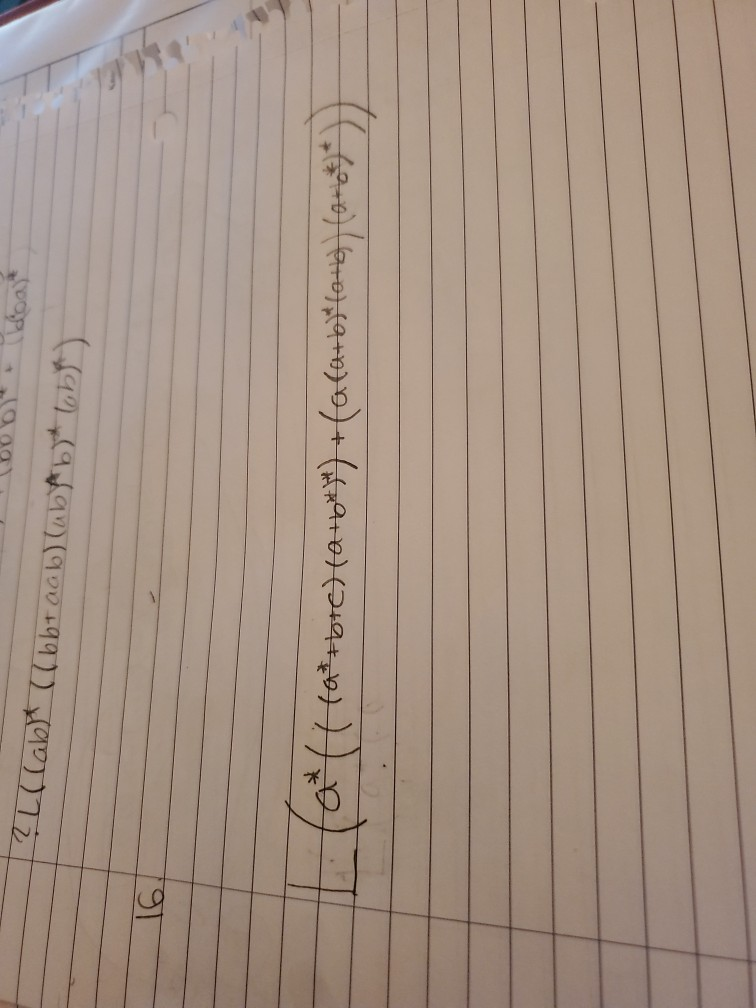 (bbb)* + (bba)*
? L((ab)* ((bb+aab)(ab)*b)* (ab)*)
16.
L(a*(((a*+b+c)(a+b*)*)+(a(a+b)*(a+b))(a+b*)*))